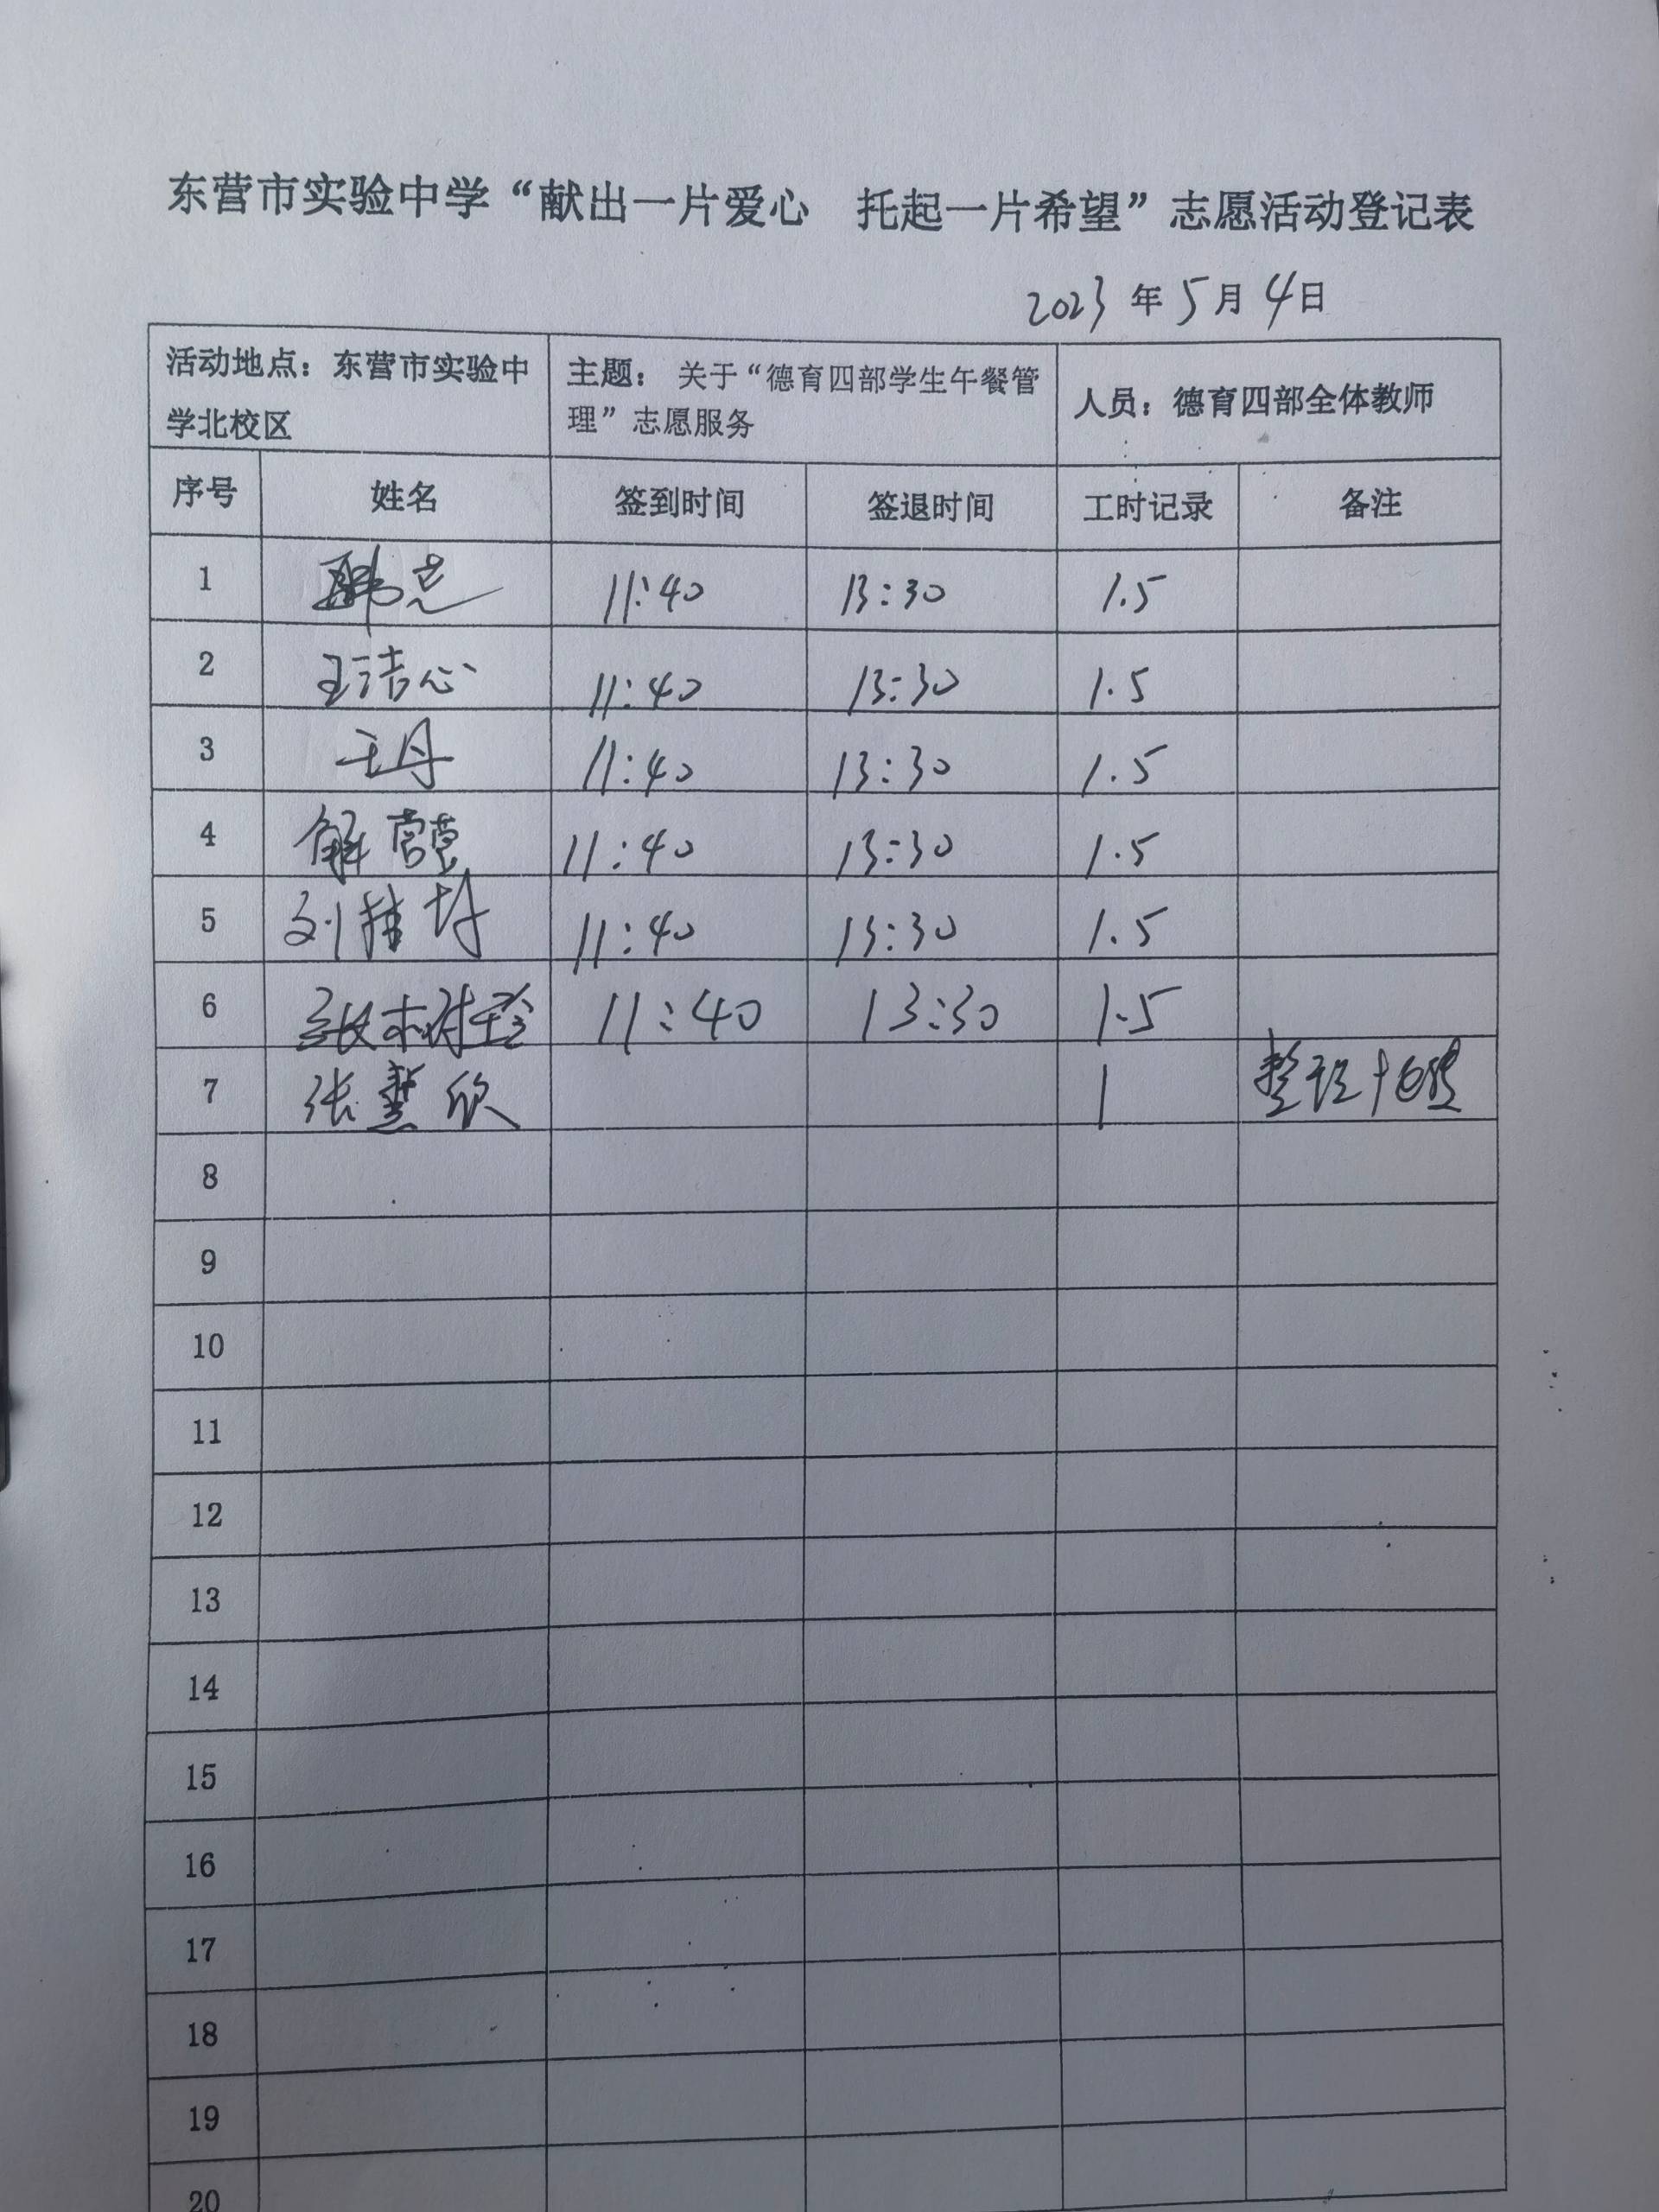 东营市实验中学“献出一片爱心 托起一片希望”志愿活动登记表
2023 年 5 月 4 日
活动地点：东营市实验中
学北校区
主题： 关于“德育四部学生午餐管
理”志愿服务
人员：德育四部全体教师
序号 姓名 签到时间 签退时间 工时记录 备注
1 11:40 13:30 1.5
2 王洁心 11:40 13:30 1.5
3 王丹 11:40 13:30 1.5
4 解营营 11:40 13:30 1.5
5 刘 11:40 13:30 1.5
6 11:40 13:30 1.5
7 张慧欣 1 整理
8
9
10
11
12
13
14
15
16
17
18
19
20